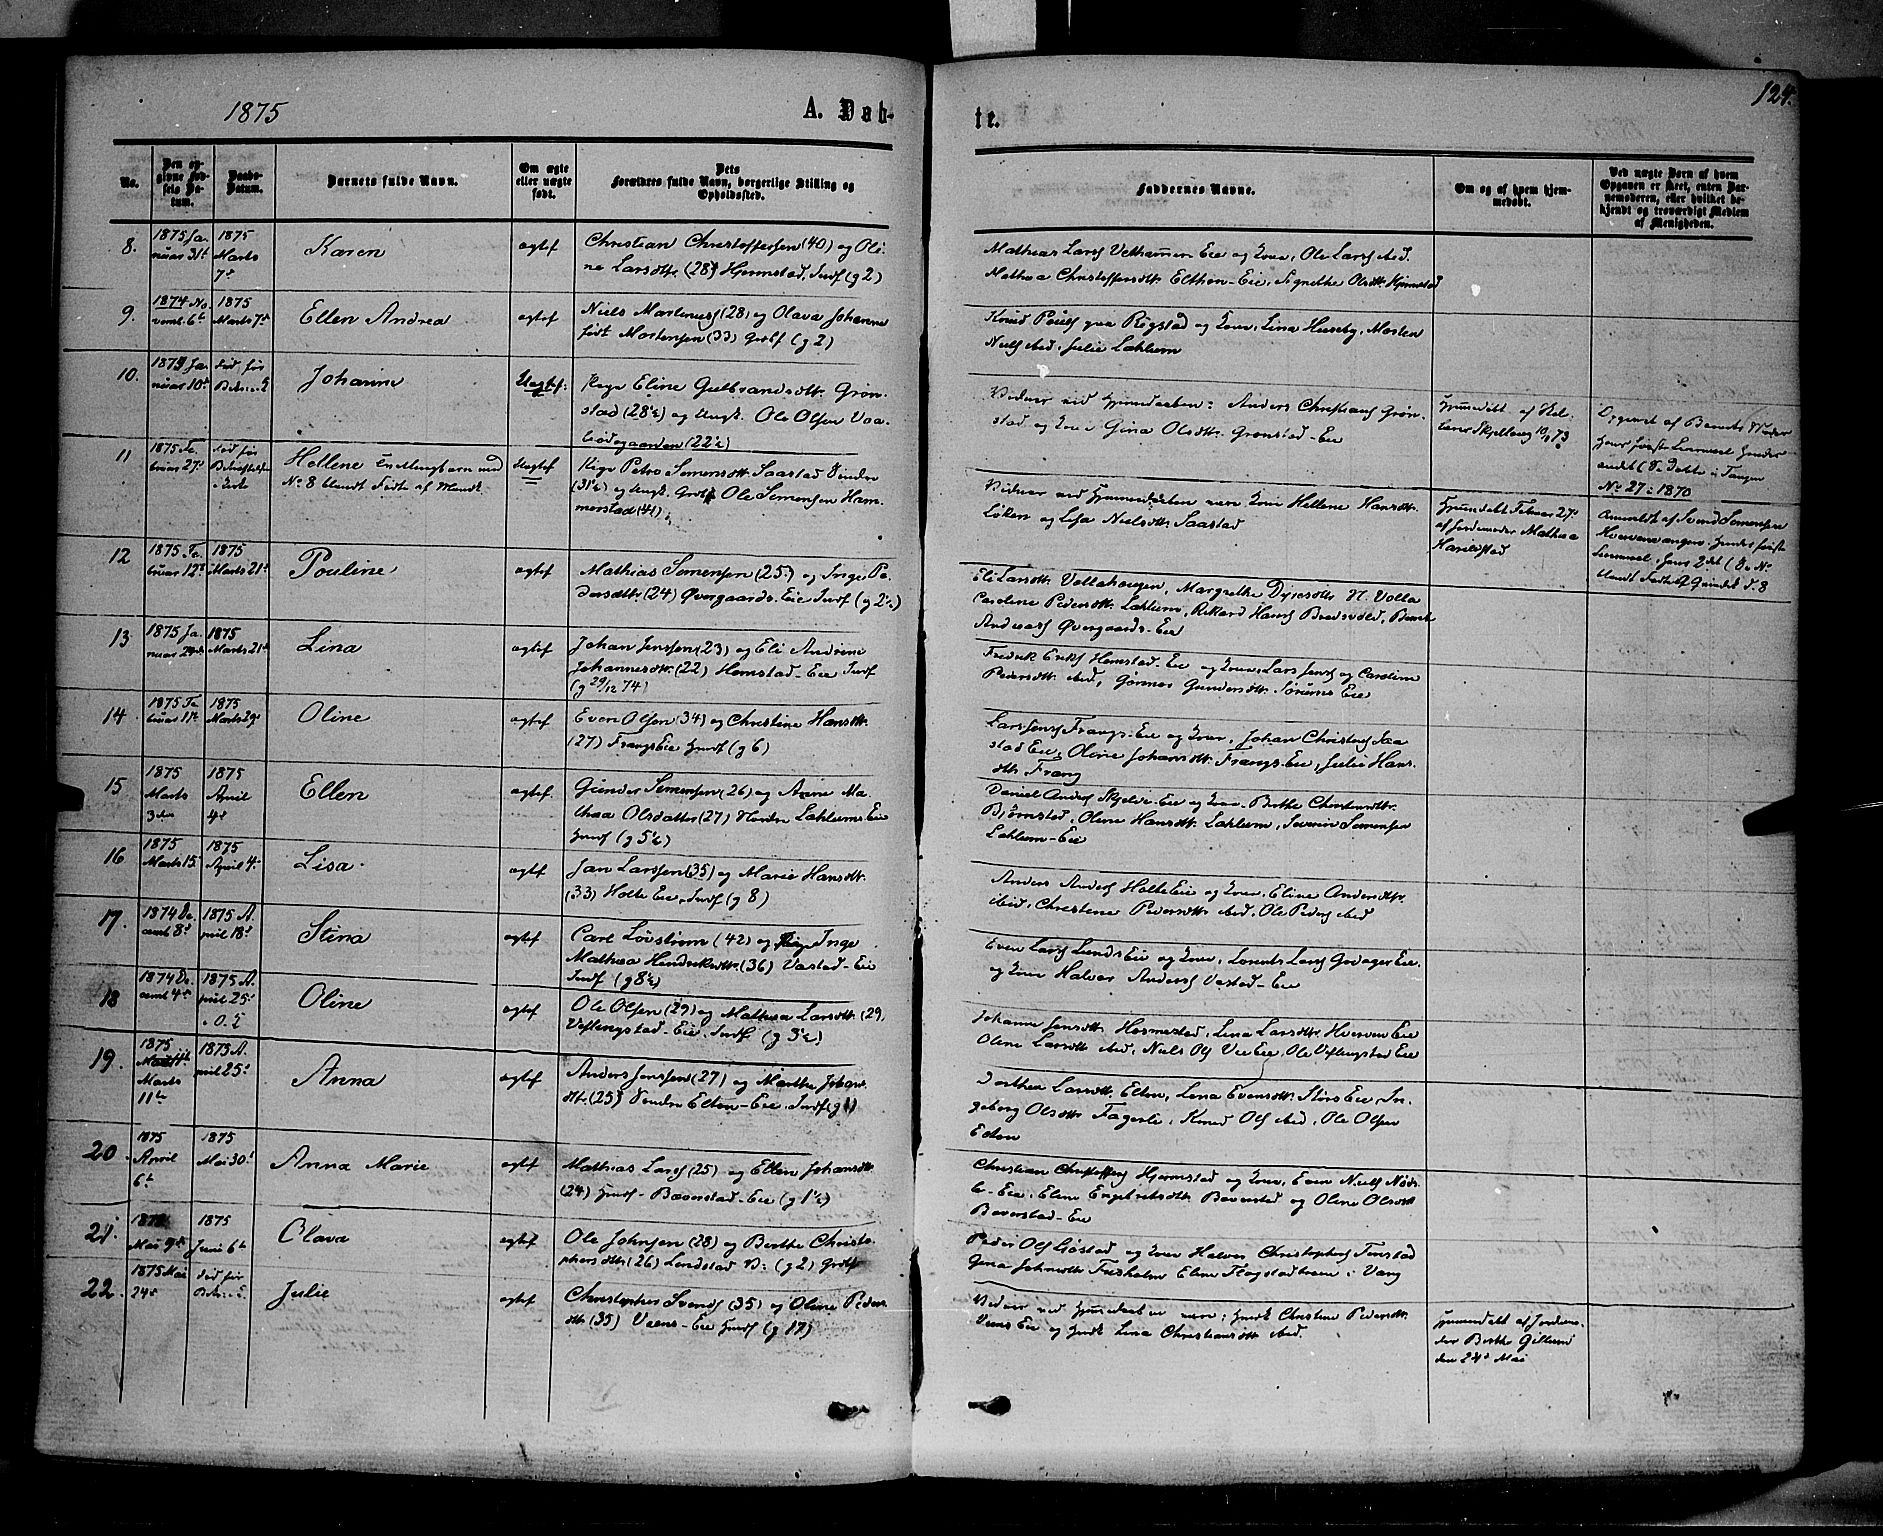 1875
A. Døb-
te.
124.
No.
Den op-
givne Fød-
sels Da-
tum.
Daabs-
Datum.
Barnets fulde Navn.
Om ægte
eller uægte
født.
Dets
Forældres fulde Navn, borgerlige Stilling og
Opholdssted.
Faddernes Navne.
Om og af hvem hjem-
medøbt.
Ved uægte Børn af hvem
Opgaven er skeet, enten Bar-
nemoderen, eller hvilket be-
kjendt og troværdigt Medlem
af Menigheden.
8.
1875 Ja-
nuar 31te
1875
Marts
7de
Karen
ægtef
Christian Christoffersen (40) og Oli-
ne Larsdtr. (28) Hjermstad, Indf (g 2)
Mathias Lars Vethammer Eie og Kone, Ole Lars ibid.
Mathea Christoffersdtr. Elthon-Eie, Signethe Olsdtr. Hjermstad
9.
1874 No-
vemb. 6te
1875
Marts 7de
Ellen Andrea
ægtef
Niels Martenus (28) og Olava Johanne
født Mortensen (33) Grdbf (g 2)
Knud Pouls paa Rigstad og Kone, Lina Huseby, Morten
Niels ibid, Julie Lahlum
10.
1875 Ja-
nuar 10de
død før
Johanne
Uægtef:
Pige Eline Gulbrandsdtr. Grøn-
stad (28½) og Ungk. Ole Olsen Vaa-
(22½)
Vidner ved Hjemmedaaben: Anders Christians Grøn-
stad og Kone Gina Olsdtr. Grønstad-Eie
Hjemmedøbt af
Skolelærer Skjelberg 10/1 73
Opgivet af Barnets Moder
No 27 : 1870
11
1875 Fe-
bruar 27de
død før
Hellene
No 8 blandt Fødte af Mandk.
Uægtef
Pige Petra Semensdtr. Saastad Søndre
(31½) og Ungk. Grdbf Ole Semensen Ham-
merstad (41)
Vidner ved Hjemmedaaben vare Kone Hellene Hansdtr.
Løken og Lisa Nielsdtr. Saastad
Hjemmedøbt Februar 27de
af Jordemoder Mathea
Anmeldt af Svend Semensen
12
1875 Fe-
bruar 12te
1875
Marts 21de
Pouline
ægtef
Mathias Semensen (25) og Inge Pe-
dersdtr. (24) Øvergaards-Eie Indf (g 2½)
Eli Larsdtr. Vollahaugen, Margrethe Dyresdtr. N. Volla
Caroline Pedersdtr. Lahlum, Rikard Hans Bredsvold, Bernt
Andreas Øvergaards-Eie
13
1875 Ja-
nuar
1875
Marts 21de
Lina
ægtef
Johan Jenssen (23) og Eli Andrine
Johannesdtr. (22) Hemstad-Eie Indf
(g 29/12 74)
Fredrik Eriks Hemstad-Eie og Kone, Lars Jens og Caroline
Pedersdtr. ibid, Gørener Gundersdtr. Sørums Eie
14
1875 Fe-
bruar 11te
1875
Marts 29de
Oline
ægtef
Even Olsen (34) og Christine Hansdtr.
(27) FrangsEie Husf (g 6)
Lars Jens Frangs-Eie og Kone, Johan Christens Saa-
stad Eie, Oline Johansdtr. Frangs-Eie, Julie Hans-
dtr. Frang
15
1875
Marts
3die
1875
April
4de
Ellen
ægtef.
Gunder Semensen (26) og Anne Ma-
thea Olsdatter (27) Nordre Lahlums Eie
Husf (g 5½)
Daniel Anders Skjelve-Eie og Kone, Berthe Christensdtr.
Bjørnstad, Oline Hansdtr. Lahlum, Severin Semensen
Lahlum-Eie
16
1875
Marts 15.
1875
April 4de
Lisa
ægtef
Jan Larssen (35) og Marie Hansdtr.
(33) Holte Eie, Indf (g 8)
Anders Anders Holte Eie og Kone, Eline Andersdtr.
ibid, Christene Pedersdtr. ibid, Ole Peders ibid
17.
1874 De-
cemb 8de
1875 A-
pril 18de
Stina
ægtef
Carl Løvstrøm (42) og Inge
Mathea Hendriksdtr. (36) Vastad-Eie
Indf (g 8½)
Even Lars Lunds Eie og Kone, Lorents Lars Govager Eie,
og Kone Halvor Anders Vastad-Eie
18
1874 De-
cemb 4de
1875 A-
pril 25de
Oline
ægtef
Ole Olsen (29) og Mathea Larsdtr. (29)
Veflingstad-Eie, Indf (g 3½)
Johanne Jensdtr. Hosmestad, Lina Larsdtr. Hverven Eie
Oline Larsdtr. ibid, Niels Ols Vee Eie, Ole Veflingstad Eie
19.
1875
Marts
11te
1875 A-
pril 25de
Anna
ægtef
Anders Jenssen (27) og Marthe Johans-
dtr. (25) Søndre Elton-Eie. Indf (g 1)
Dorthea Larsdtr. Elton, Lena Evensdtr. Stens Eie, In-
geborg Olsdtr. Fagerli, Knud Ols ibid, Ole Olsen
Elton
20
1875
April
6te
1875
Mai 30te
Anna Marie
ægtef
Mathias Lars (25) og Ellen Johansdtr.
(24) Husf- Baverstad-Eie (g 1½)
Christian Christoffers Hjermstad og Kone, Even Niels Nøds-
le-Eie, Eline Engebretsdtr. Baverstad og Oline Olsdtr
Baverstad-Eie
21.
1875
Mai 9de
1875
Juni 6te
Olava
ægtef
Ole Johnsen (28) og Berthe Christo-
phersdtr. (26) Lindstad (g 2) Grdbf
Peder Ols Gjøstad og Kone Halvor Christophers Finstad
Gina Johnsdtr. Eline i Vang
22.
1875 Mai
24de
død før
Julie
ægtef
Christopher Svends (35) og Oline Peders-
dtr. (35) Veens-Eie Husf (g 17)
Vidner ved Hjemmedaaben vare: Husk. Christine Pedersdtr.
Veens Eie og Husk. Lina Christiansdtr ibid.
Hjemmedøbt af Jordemo-
der Berthe Gillund
den 24de Mai